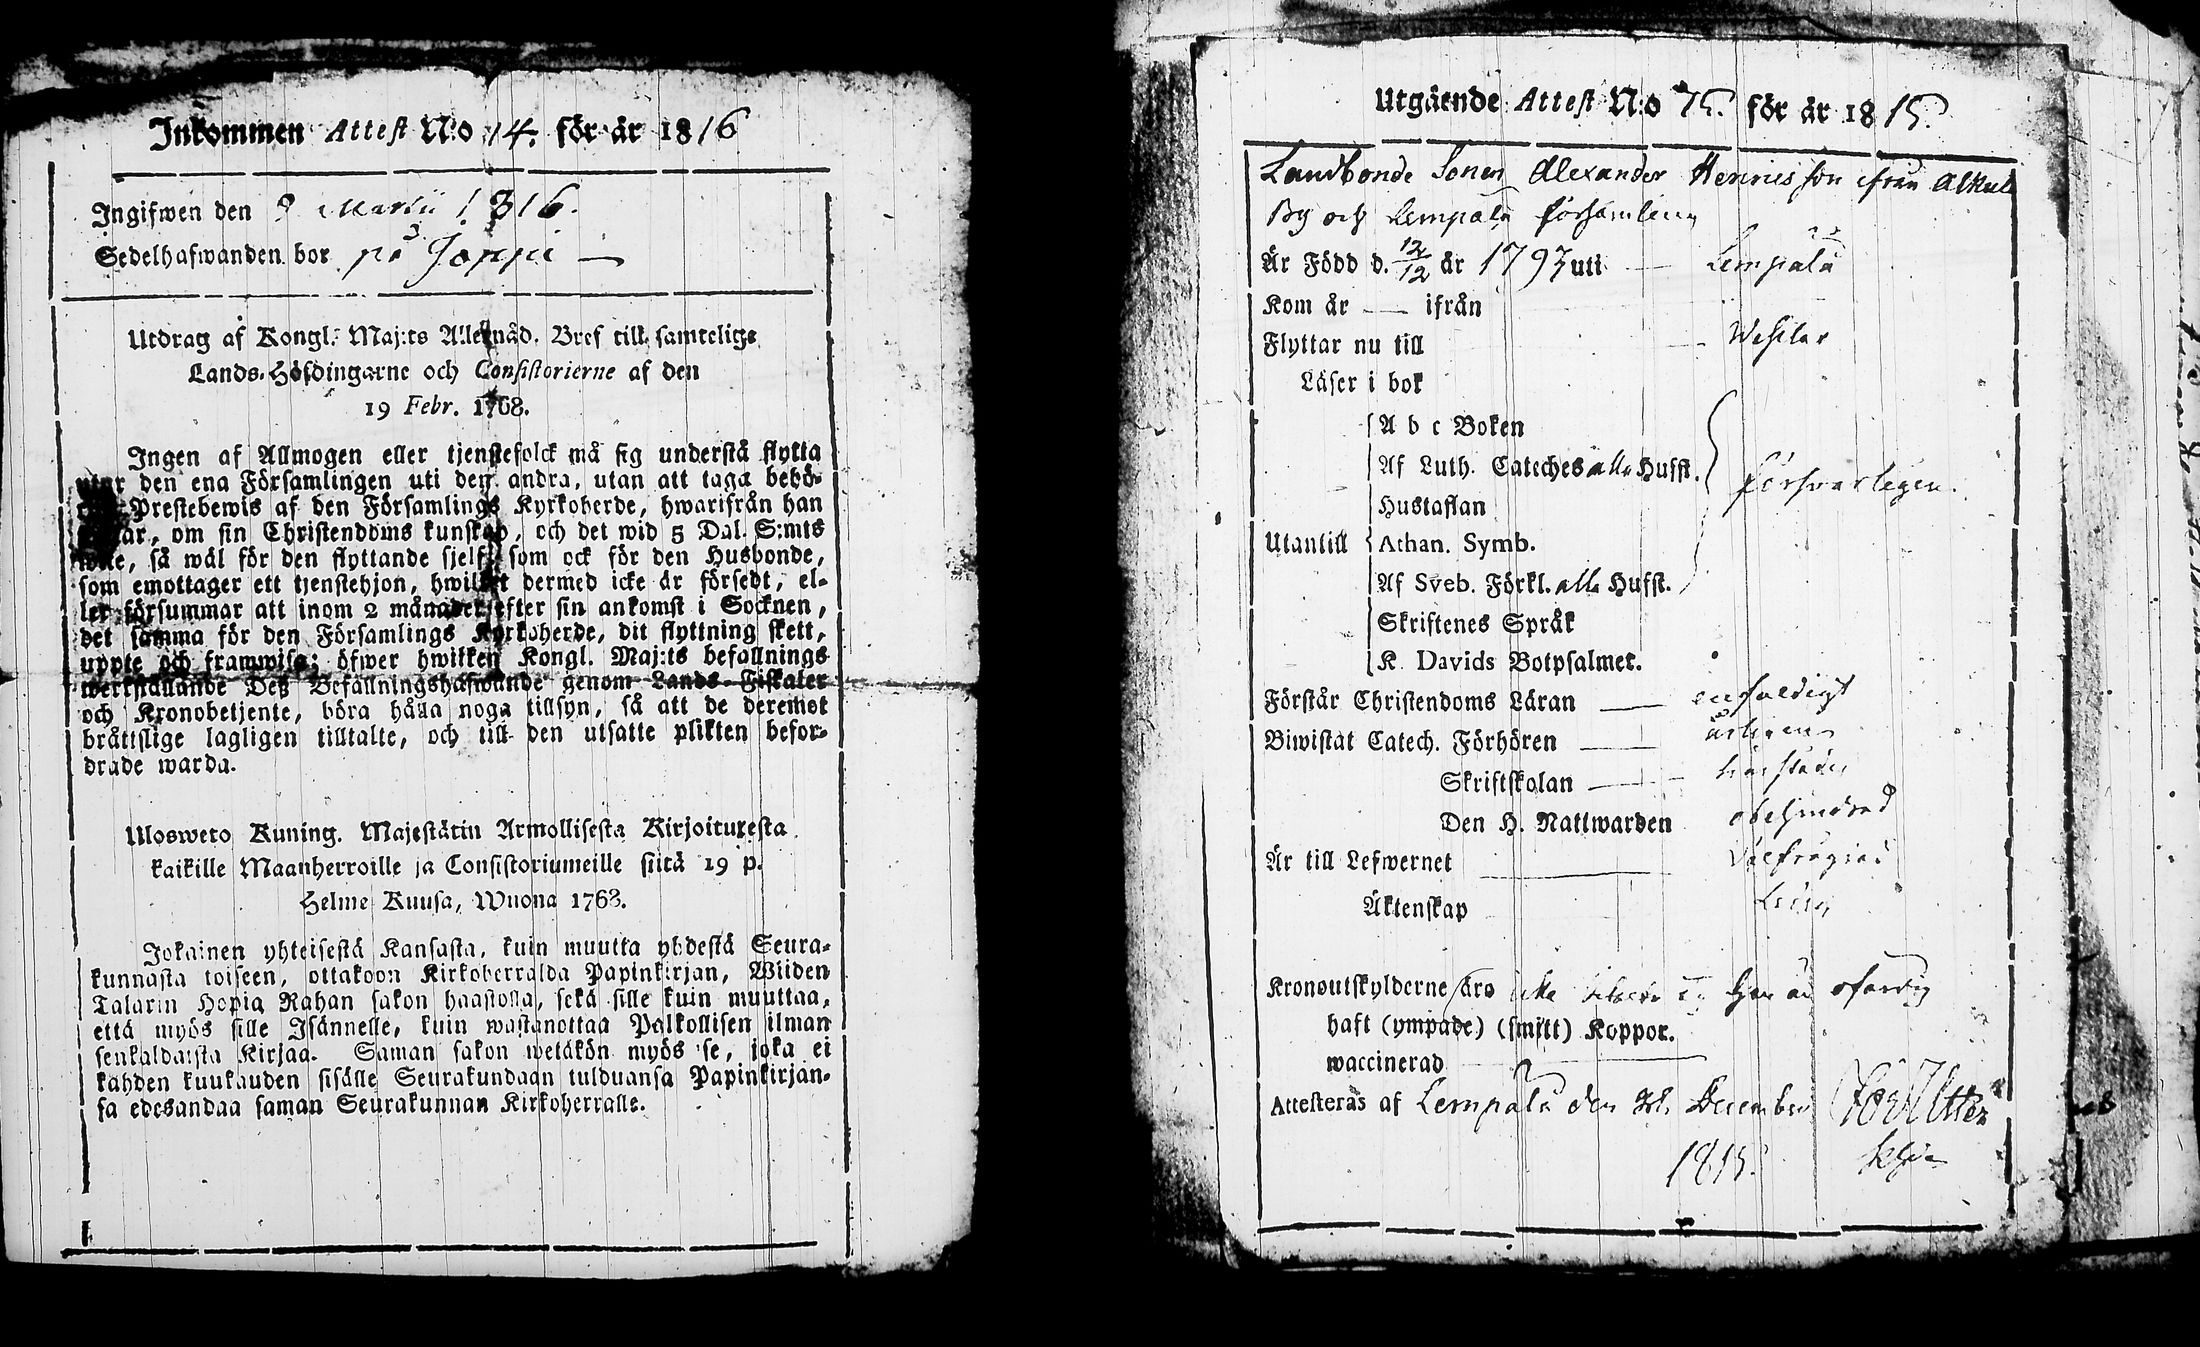 Inkommen Attest N:o 14. för år 1816
Ingifwen den 9 Martii 1816.
Sedelhafwanden bor på Joppi —
Utdrag af Kongl. Maj:ts Allernåd. Bref till samtelige
Lands-Höfdingarne och Consistorierne af den
19 Febr. 1768.
Ingen af Allmogen eller tjenstefolck må sig understå flytta
utur den ena Församlingen uti den andra, utan att taga behö-
Prestebewis af den Församlings Kyrkoherde, hwarifrån han
om sin Christendoms kunskap, och det wid 5 Dal. S:mts
wite, så wäl för den flyttande sjelf, som ock för den Husbonde,
som emottager ett tjenstehjon, hwilket dermed icke är försedt, el-
ler försummar att inom 2 månader efter sin ankomst i Socknen,
det samma för den Församlings Kyrkoherde, dit flyttning skett,
uppte och framwisa; öfwer hwilken Kongl. Maj:ts befallnings
werkställande Deß Befallningshafwande genom Lands-Fiskaler
och Kronobetjente, böra hålla noga tillsyn, så att de deremot
bråttslige lagligen tilltalte, och till den utsatte plikten befor-
drade warda.
Ulosweto Kuning. Majestätin Armollisesta Kirjoituxesta
kaikille Maanherroille ja Consistoriumeille siitä 19 p.
Helme Kuusa, Wuona 1768.
Jokainen yhteisestä Kansasta, kuin muutta yhdestä Seura-
kunnasta toiseen, ottakoon Kirkoherralda Papinkirjan, Wiiden
Talarin Hopia Rahan sakon haastolla, sekä sille kuin muuttaa,
että myös sille Isännelle, kuin wastanottaa Palkollisen ilman
senkaldaista Kirjaa. Saman sakon wetäkön myös se, joka ei
kahden kuukauden sisälle Seurakundaan tulduansa Papinkirjan-
sa edesandaa saman Seurakunnan Kirkoherralle.
Utgående Attest N:o 75. för år 1815.
Landbonde Sonen Alexander Henricsson ifrån Alkul
By och Lempälä församling
Är Född d. 12/12 år 1793 uti — Lempälä
Kom år — ifrån
Flyttar nu till — Wesilax
Läser i bok
A b c Boken
Af Luth. Cateches alla Hufst.
Hustaflan
försvarligen.
Utantill Athan. Symb.
Af Sveb. Förkl. alla Hufst.
Skriftenes Språk
K. Davids Botpsalmer.
Förstår Christendoms Läran — enfaldigt
Biwistat Catech. Förhören — årligen
Skriftskolan —
Den H. Nattwarden obehindrad
Är till Lefwernet — wälfrägdad
Äktenskap Ledig
Kronoutskylderne äro icke
haft (ympade) (smitt) Koppor.
waccinerad —
Attesteras af Lempälä den December
1815.